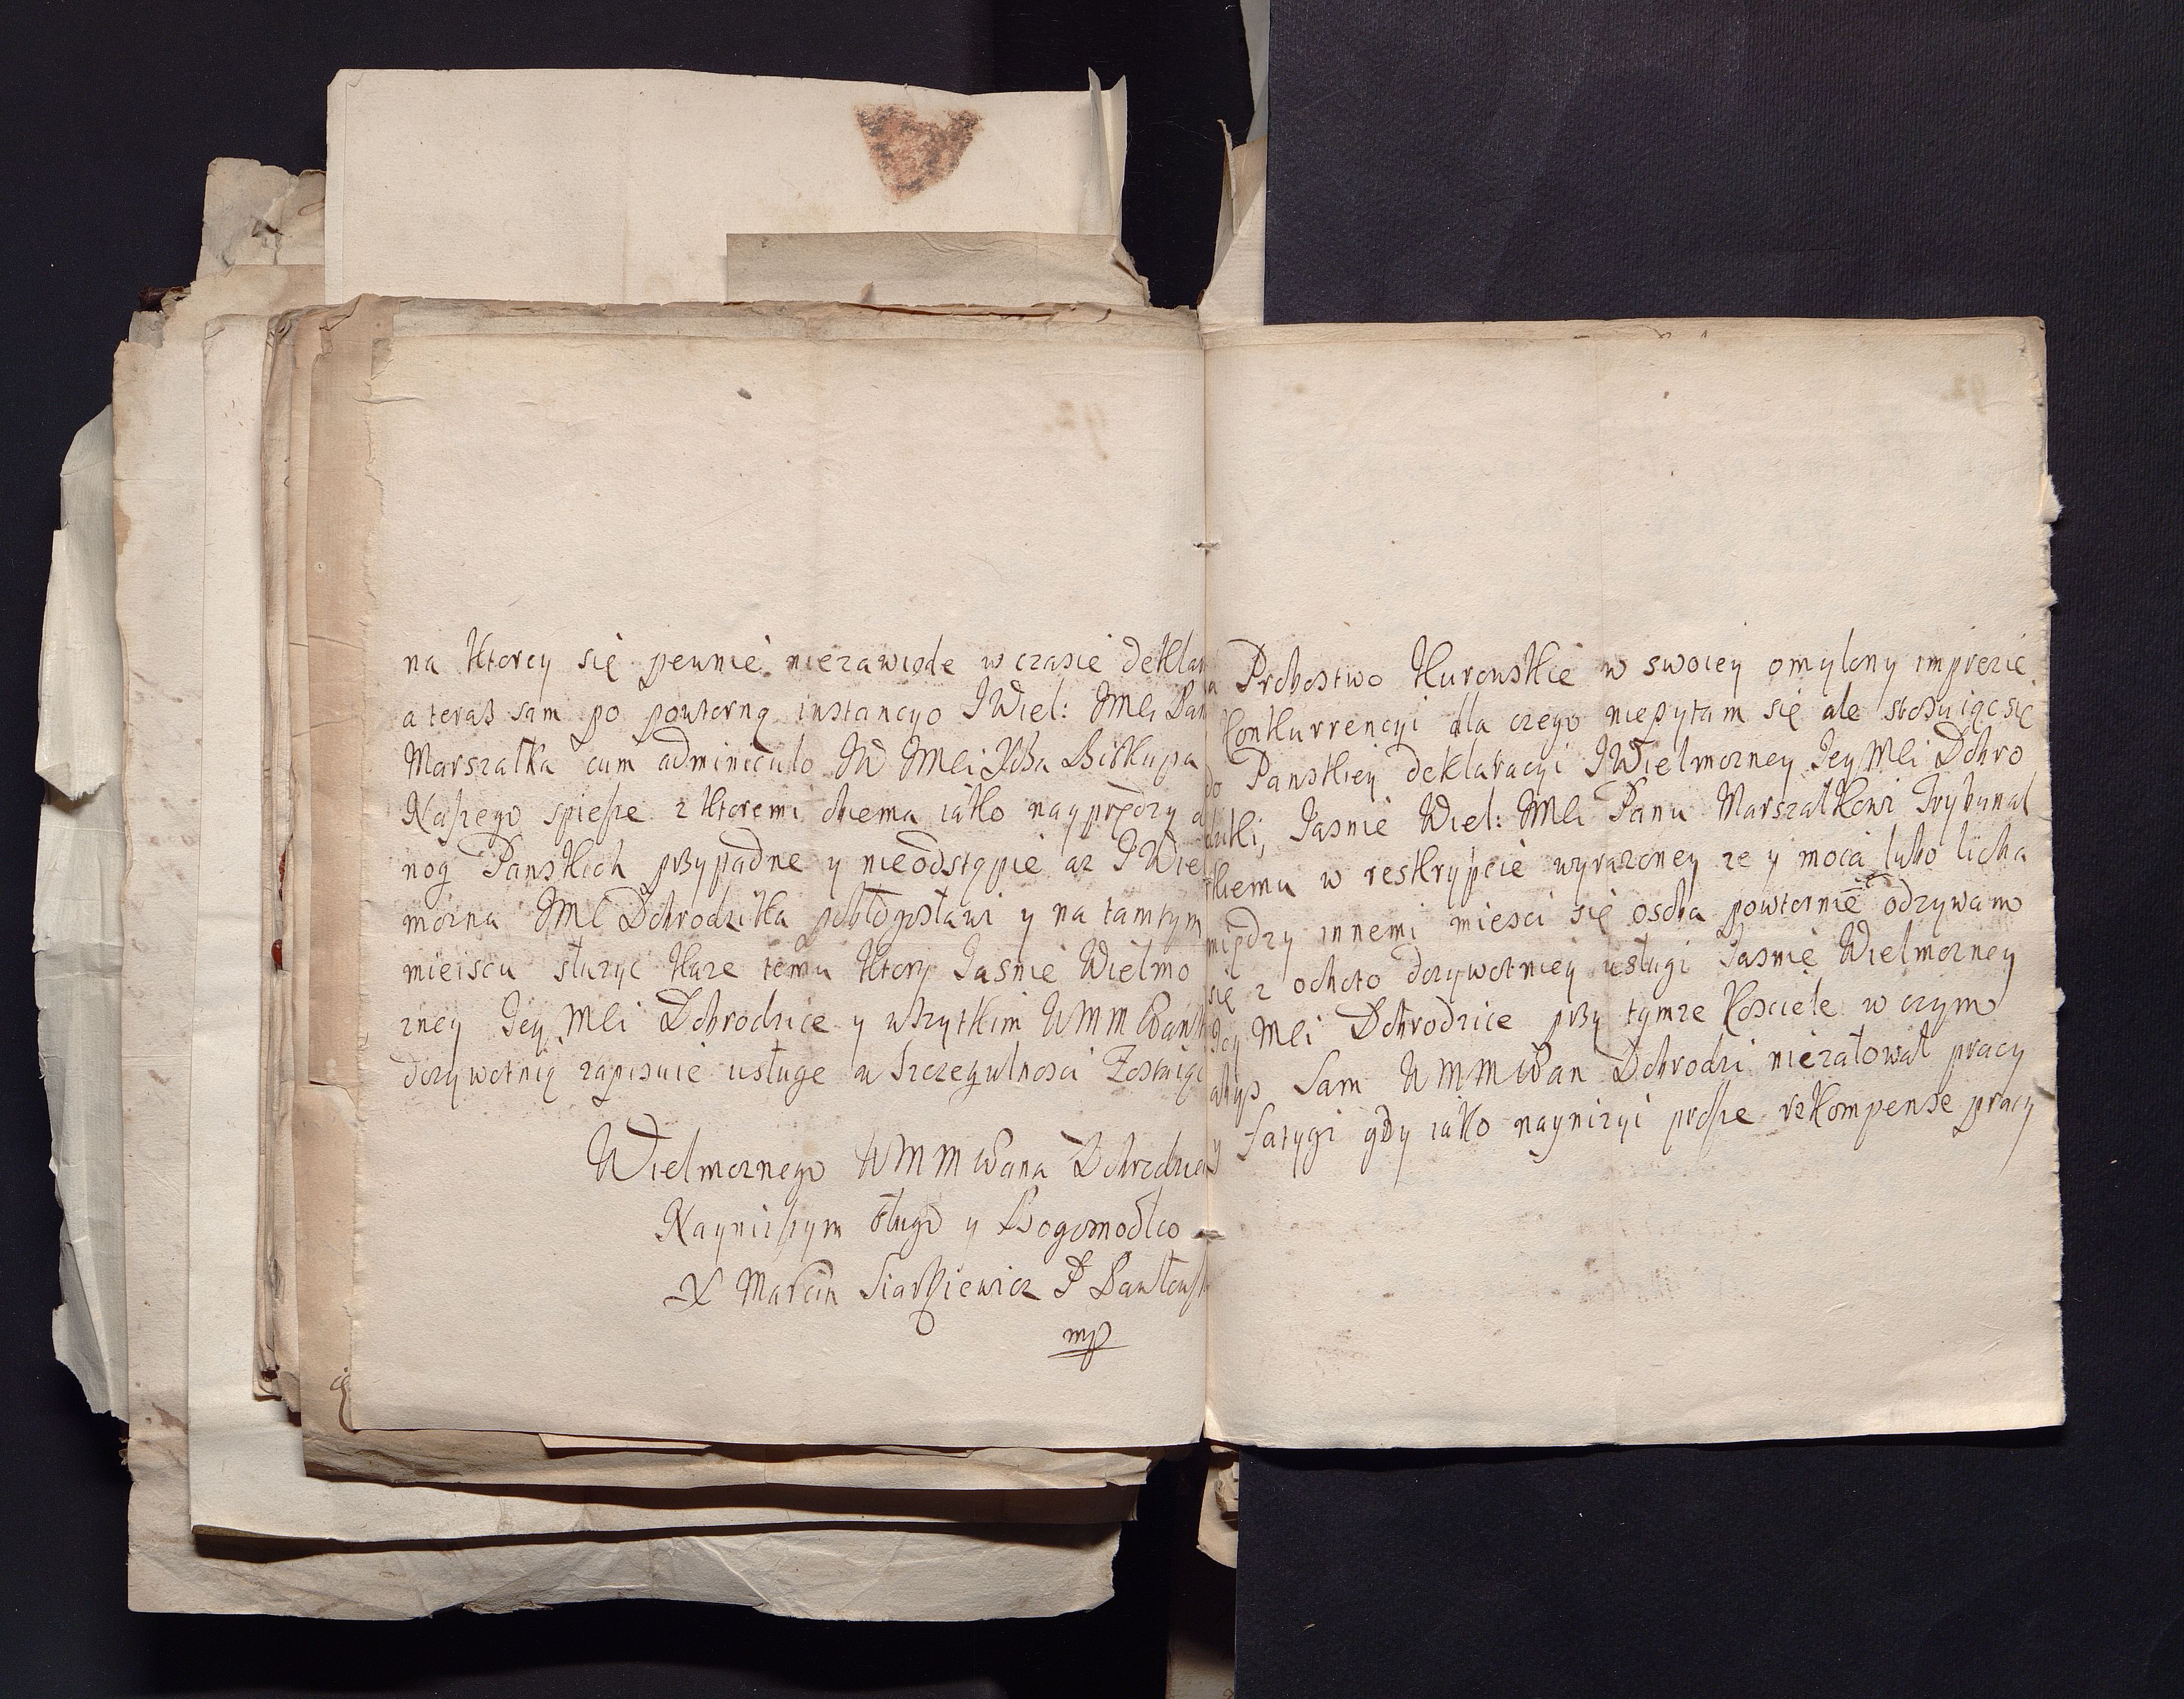 na Ktorey się pewnie niezawiode w czasie deklar
a teraß sam po powtorną instancyo JWiel: JMli Pan
Marszałka cum adminiculo JW JMli Xdza Biskupa
Naszego spiesze z Ktoremi obiema iako nayprędzy d
nog Panskich przypadne y nieodstąpie aż JWiel
można JMC Dobrodzika pobłogosławi y na tamtym
mieiscu służyc Każe temu Ktory Jasnie Wielmo
żney Jey Mli Dobrodzice y wszytkim WMMPanst
dożywotnią zapisuie usługe a w szczegulnosci Zostaiąc
Wielmożnego WMMPana Dobrodzie
Nayniższym sługo y Bogomodlco
X Marcin Siarkiewicz P Pawłowsk
mp
Probostwo Kurowskie w swoiey omylony imprezie
Konkurrencyi dla czego niepytam się ale stosuiąc się
do Panskiey deklaracyi JWielmożney Jey Mli Dobro
dziki, Jasnie Wiel: JMli Panu Marszałkowi Trybunal
skiemu w reskrypcie wyrażoney że y moia lubo licha
między innemi miesci się osoba powtornie odzywam
się z ochoto dożywotniey usługi Jasnie Wielmożney
Jey Mli Dobrodzice przy tymże Kosciele w czym
abyś sam WMMPan Dobrodzi nieżałował pracy
y fatygi gdy iako nayniżyi prosze rekompense pracy